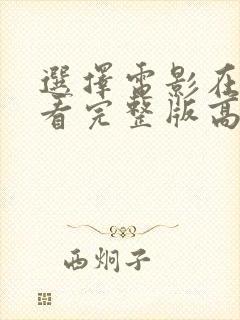 選擇雷影在
看完整版高
西炯子